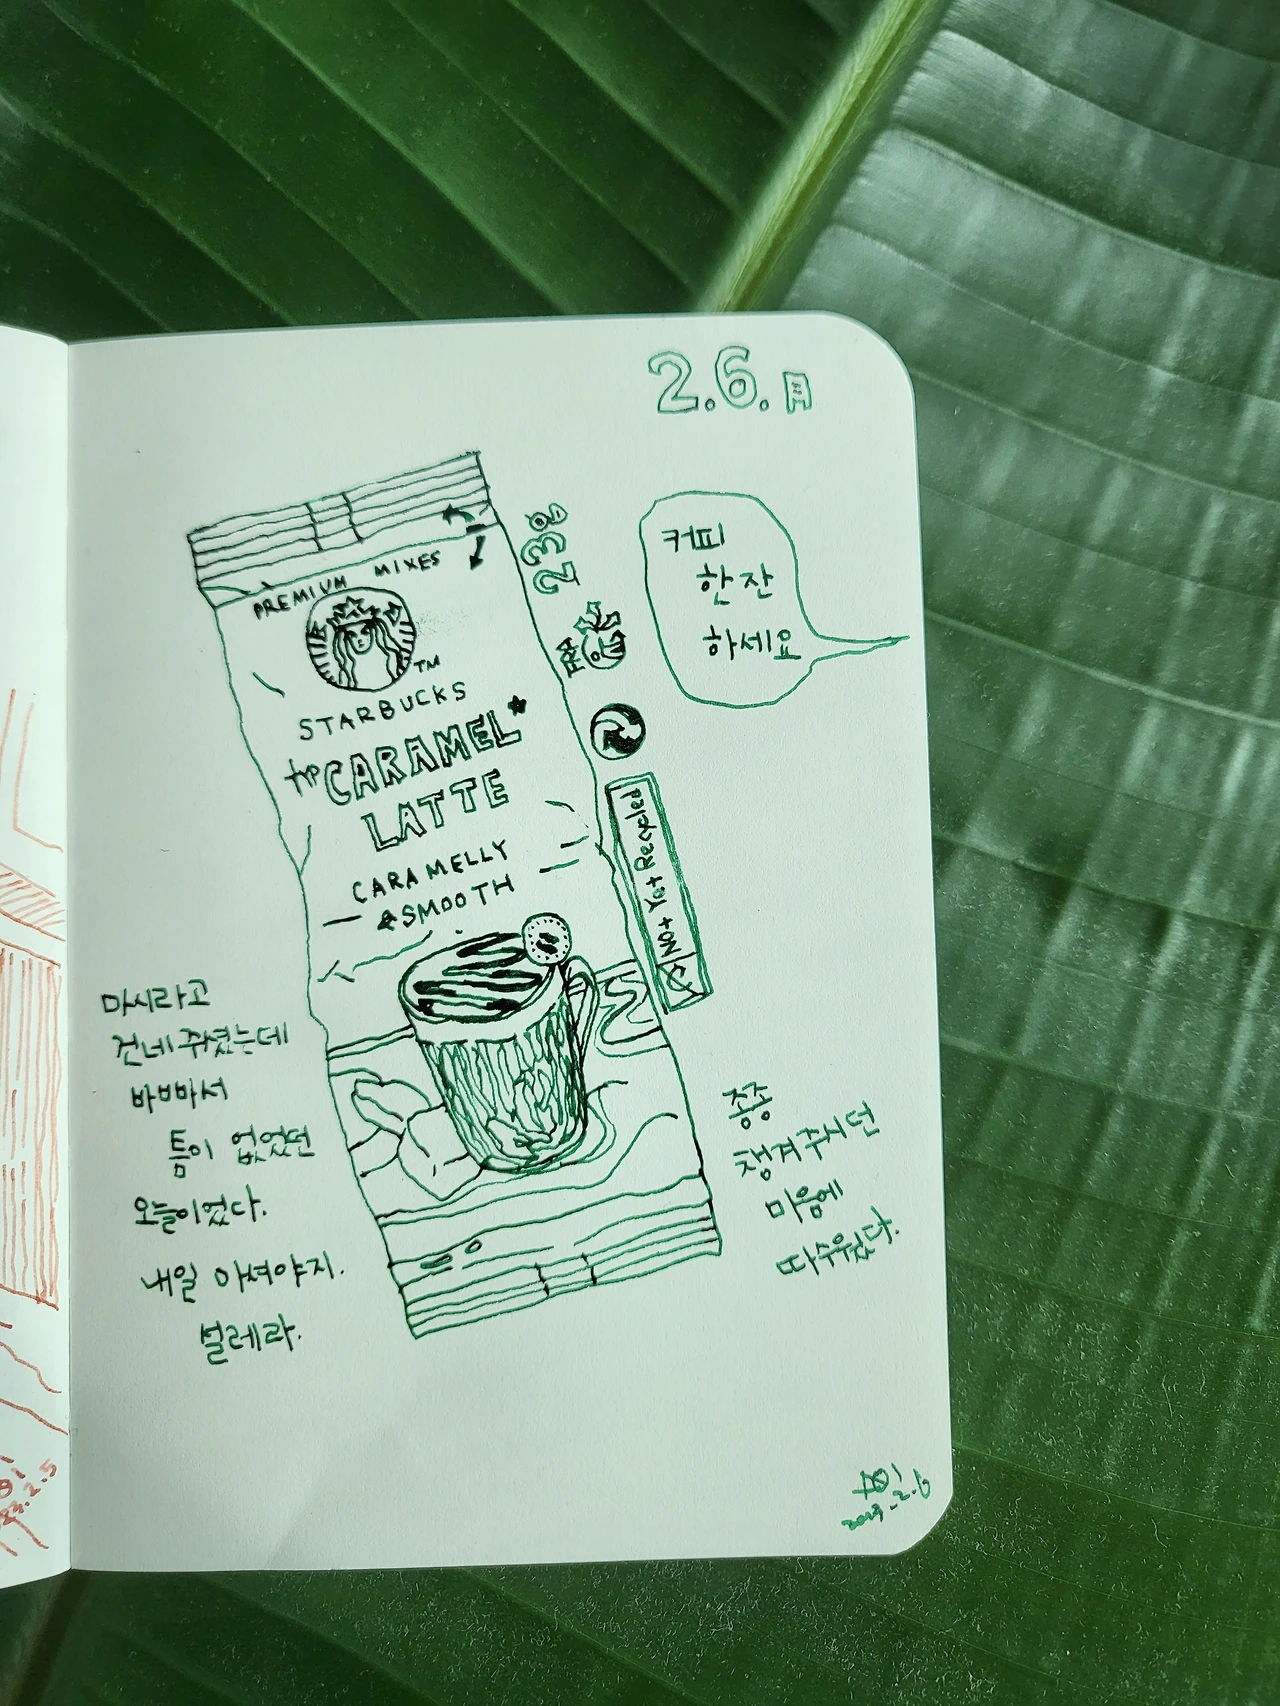 2.6.月
23g
커피
한잔
하세요
PREMIUM MIXES
TM
STARBUCKS
TYP CARAMEL*
LATTE
CARAMELLY
& SMOOTH
Recycled
마시라고
건네주셨는데
바빠서
틈이 없었던
오늘이었다.
내일 마셔야지.
설레라.
종종
챙겨주시던
마음에
따수웠다.
2023.2.6
23.2.5